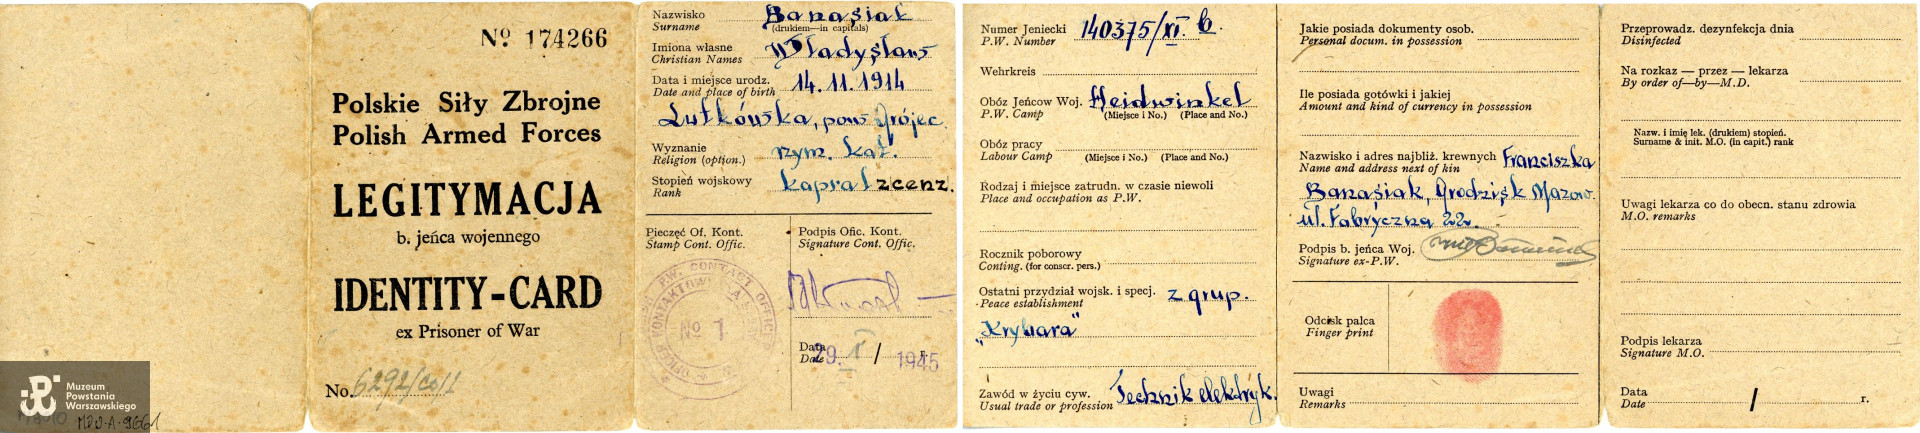 No 174266
Polskie Siły Zbrojne
Polish Armed Forces
LEGITYMACJA
b. jeńca wojennego
IDENTITY-CARD
ex Prisoner of War
No. 6292/coll
Muzeum
Powstania
Warszawskiego
MPW-A-9661
Nazwisko Banasiak
Surname (drukiem—in capitals)
Imiona własne Władysław
Christian Names
Data i miejsce urodz. 14.11.1914
Date and place of birth
Lutkówska, pow. Grójec
Wyznanie rzym. kat.
Religion (option.)
Stopień wojskowy kapral z cenz.
Rank
Pieczęć Of. Kont.
Stamp Cont. Offic.
P.W. CONTACT OFFICER
No 1
Podpis Ofic. Kont.
Signature Cont. Offic.
Data 29. V / 1945 r.
Date
Numer Jeniecki 140375/XI. b.
P.W. Number
Wehrkreis
Obóz Jeńcow Woj. Heidwinkel
P.W. Camp (Miejsce i No.) (Place and No.)
Obóz pracy
Labour Camp (Miejsce i No.) (Place and No.)
Rodzaj i miejsce zatrudn. w czasie niewoli
Place and occupation as P.W.
Rocznik poborowy
Conting. (for conscr. pers.)
Ostatni przydział wojsk. i specj. z grup.
Peace establishment
"Krybara"
Zawód w życiu cyw. Technik elektryk.
Usual trade or profession
Jakie posiada dokumenty osob.
Personal docum. in possession
Ile posiada gotówki i jakiej
Amount and kind of currency in possession
Nazwisko i adres najbliż. krewnych Franciszka
Name and address next of kin
Banasiak, Grodzisk Mazow.
ul. Fabryczna 22.
Podpis b. jeńca Woj.
Signature ex-P.W.
Odcisk palca
Finger print
Uwagi
Remarks
Przeprowadz. dezynfekcja dnia
Disinfected
Na rozkaz — przez — lekarza
By order of—by—M.D.
Nazw. i imię lek. (drukiem) stopień.
Surname & init. M.O. (in capit.) rank
Uwagi lekarza co do obecn. stanu zdrowia
M.O. remarks
Podpis lekarza
Signature M.O.
Data / r.
Date